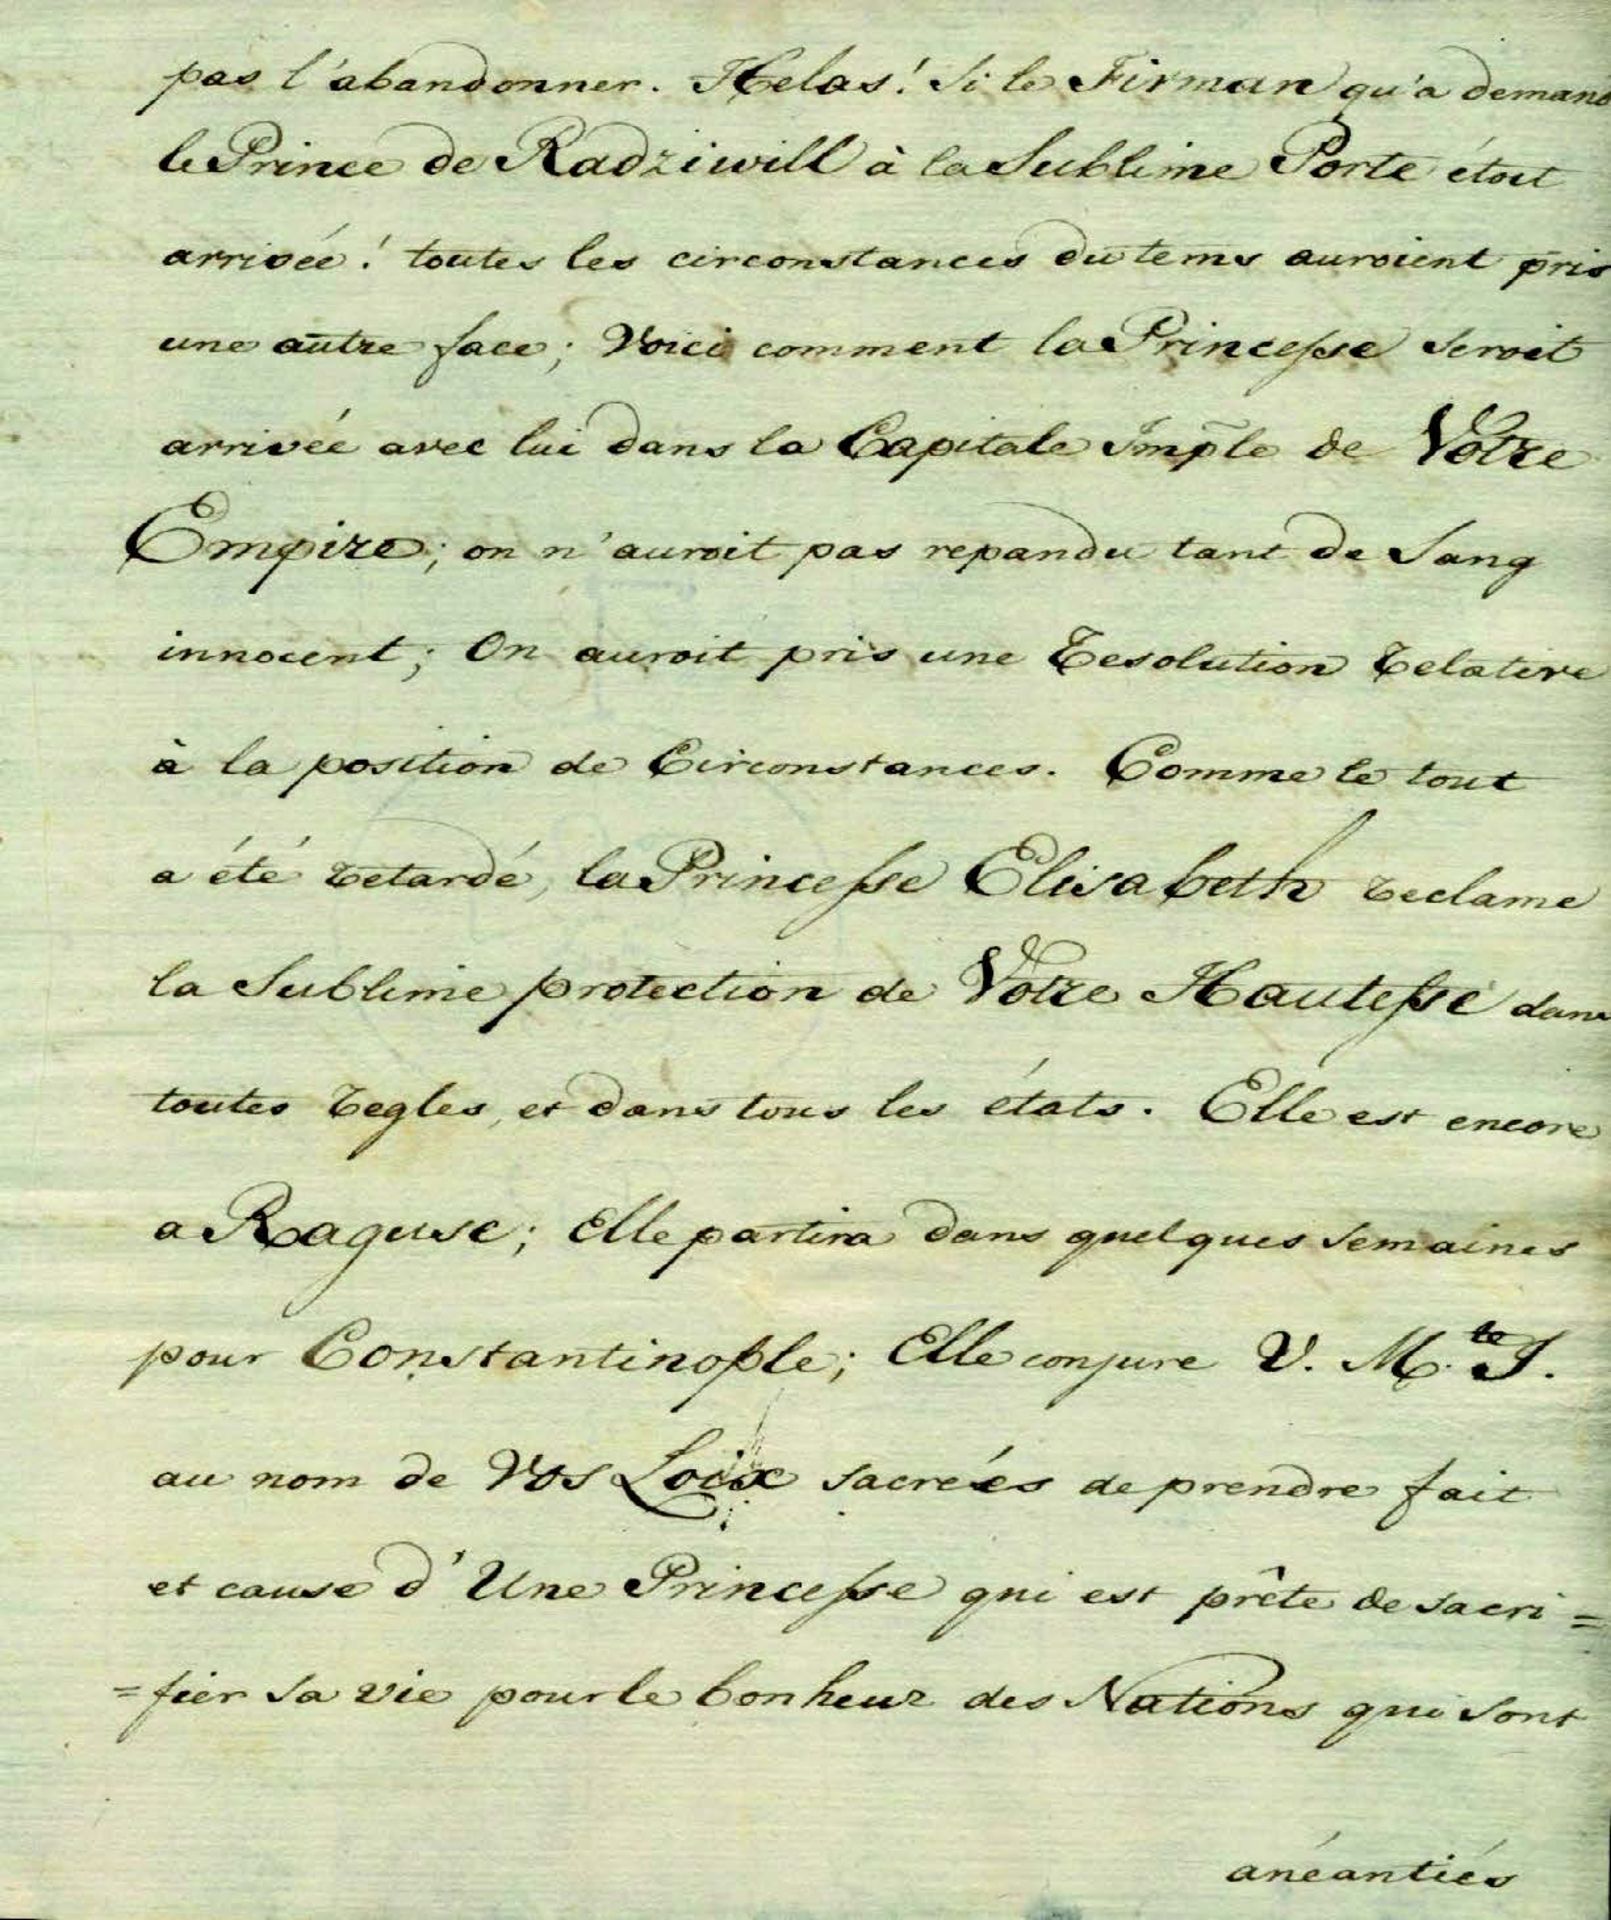 pas l'abandonner. Helas! Si le Firman qu'a demand
le Prince de Radziwill à la Sublime Porte étoit
arrivée! toutes les circonstances du tems auroient pris
une autre face; Voici comment la Princesse seroit
arrivée avec lui dans la Capitale Imple de Votre
Empire; on n'auroit pas repandu tant de Sang
innocent; On auroit pris une Resolution Relative
à la position de Circonstances. Comme le tout
a été retardé, la Princesse Elisabeth reclame
la Sublime protection de Votre Hautesse dans
toutes Regles, et dans tous les états. Elle est encore
a Raguse; Elle partira dans quelques semaines
pour Constantinople; Elle conjure V. M.te I.
au nom de Vos Loix sacreés de prendre fait
et cause d'Une Princesse qui est prête de sacri=
=fier sa vie pour le bonheur des Nations qui sont
anéantiés